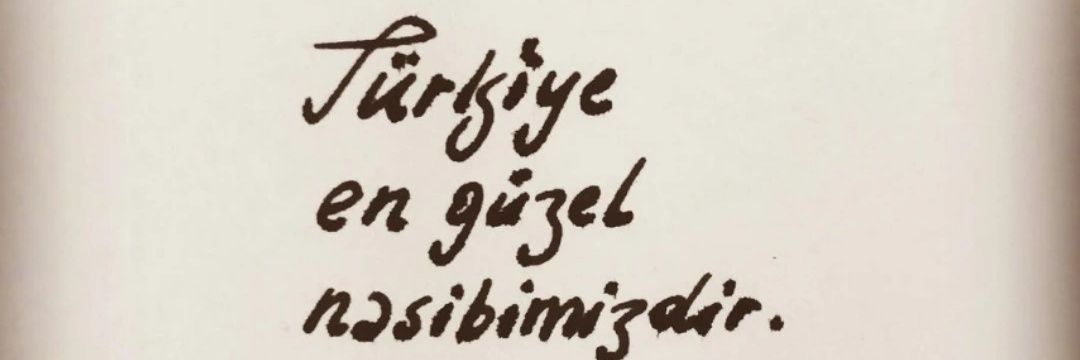 Türkiye
en güzel
nəsibimizdir.